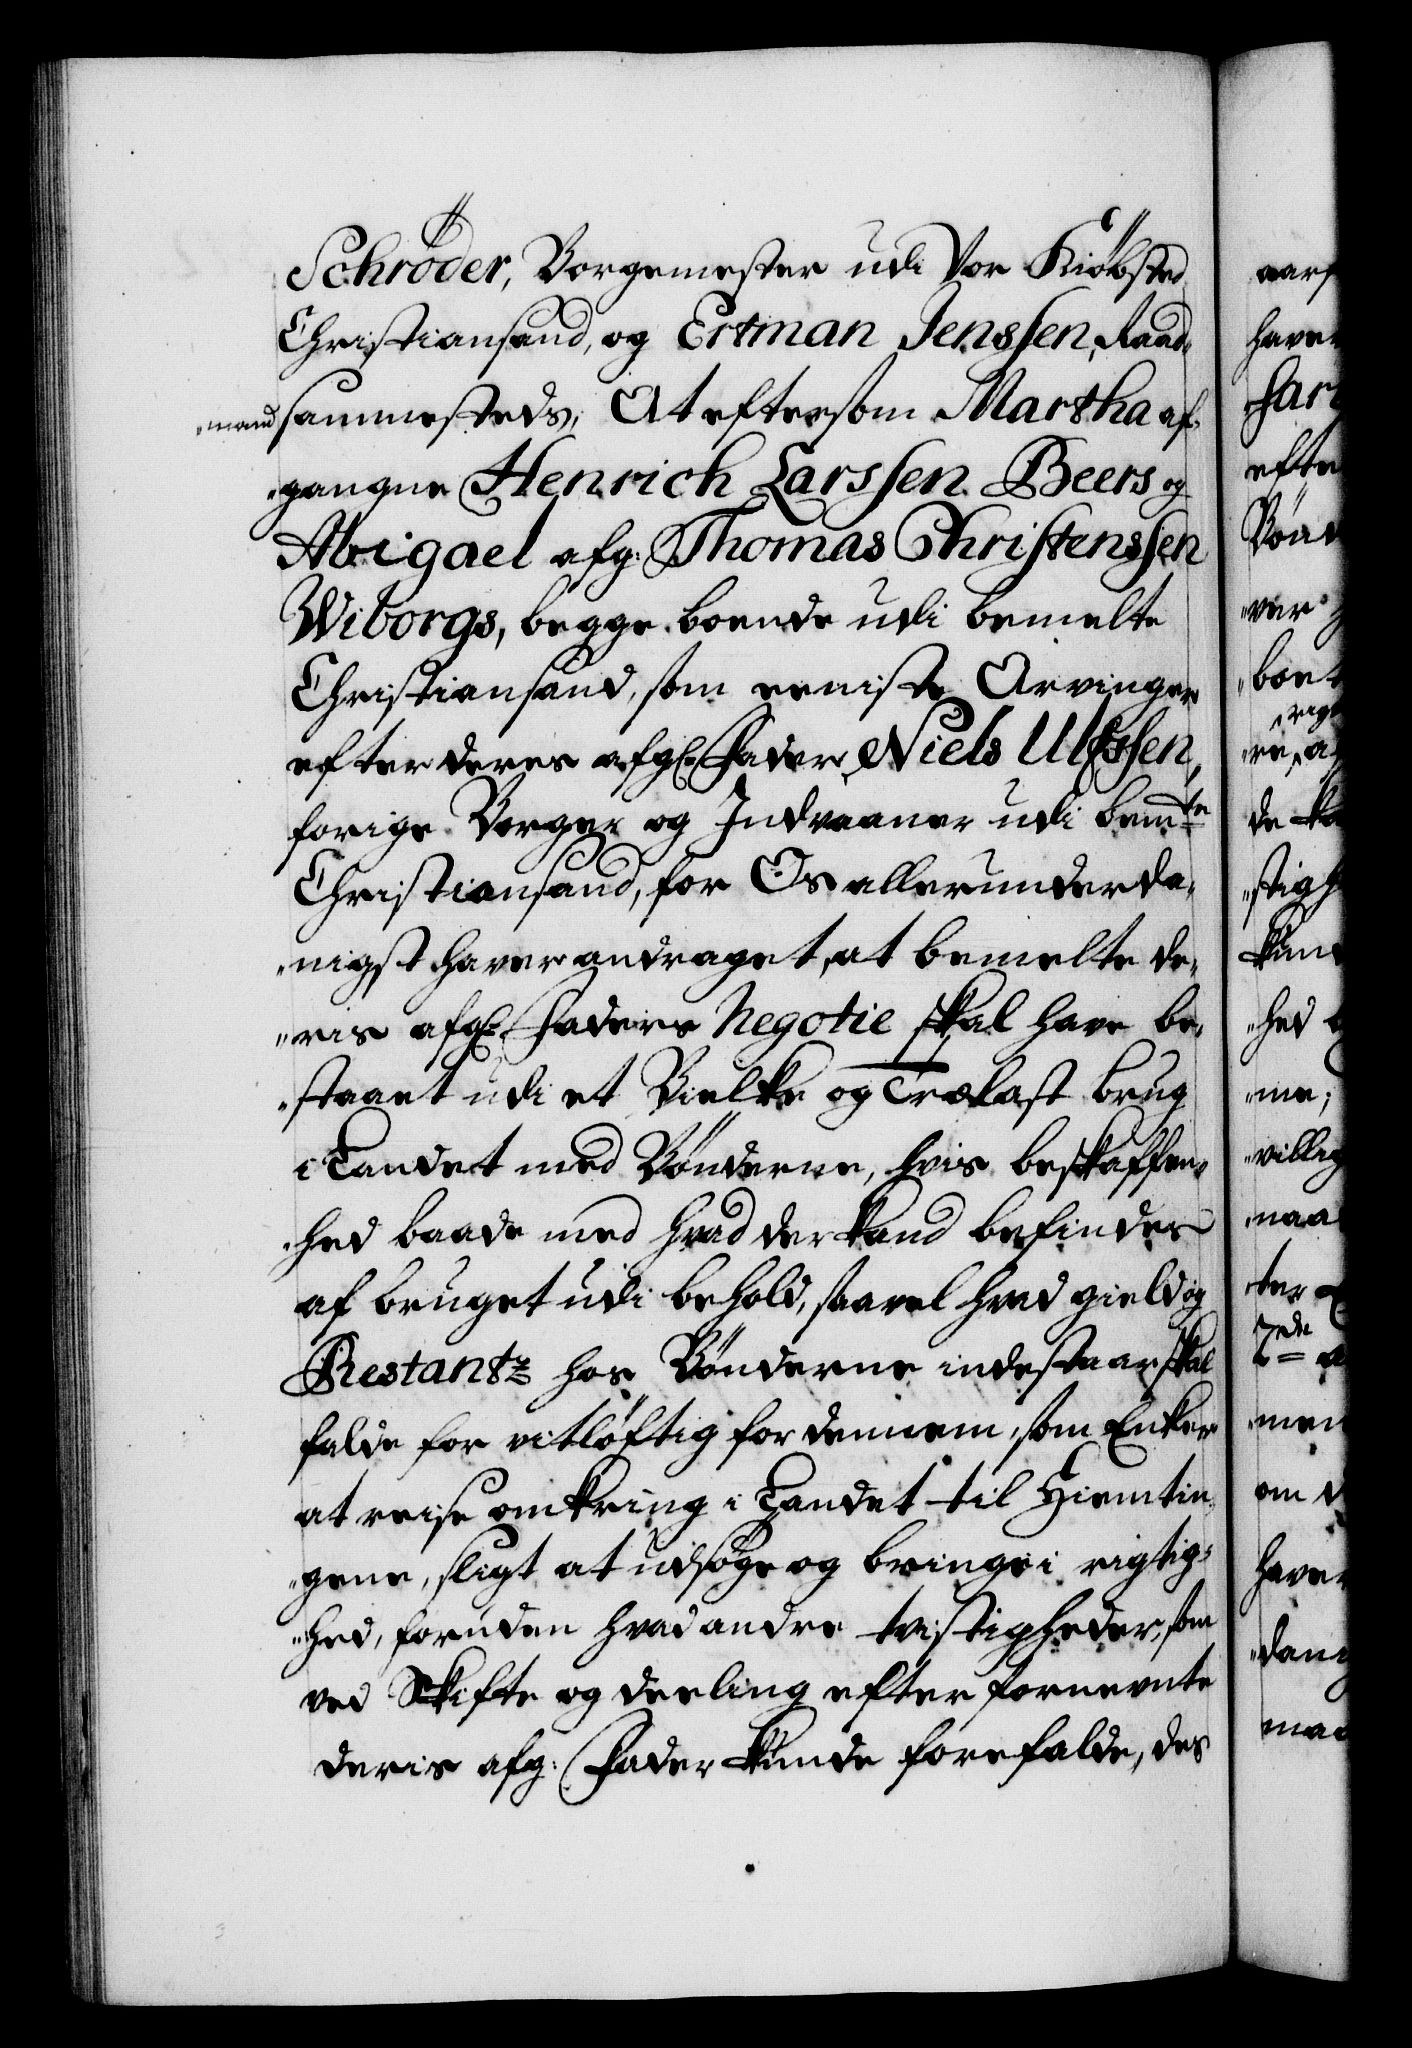 Schrøder, Borgemester udi Vor Kiøbsted
Christiansand, og Ertman Jenssen, Raad-
mand sammesteds, At eftersom Martha af-
gangne Henrich Larssen Beers og
Abigael afg: Thomas Christenssen
Wiborgs, begge boende udi bemelte
Christiansand, som eeniste Arvinger
efter deres afgl: Fader Niels Ulfssen,
forige Borger og Indvaaner udi bemte
Christiansand, for Os allerunderda-
nigst haver andraget, at bemelte de-
ris afgl: Faders Negotie skal have be-
staaet udi et Bielke og Trælast brug
i Landet med Bønderne, hvis beskaffen-
hed baade med hvad der kand befindes
af bruget udi behold, saavel hvad gield og
Restantz hos Bønderne indestaar, skal
falde for vitløftig for dennem, som Enker
at reise omkring i Landet til Hiemtin-
gene, sligt at udsøge og bringe i rigtig-
hed, foruden hvad andre tvistigheder, som
ved Skifte og deeling efter fornevnte
deris afg: Fader kunde forefalde, des
aars
haver
efte
Bønd
ver
boet
de
stigh
kund
hed
me;
villig
naa
ter
7de
men
om
haver
dan
maa